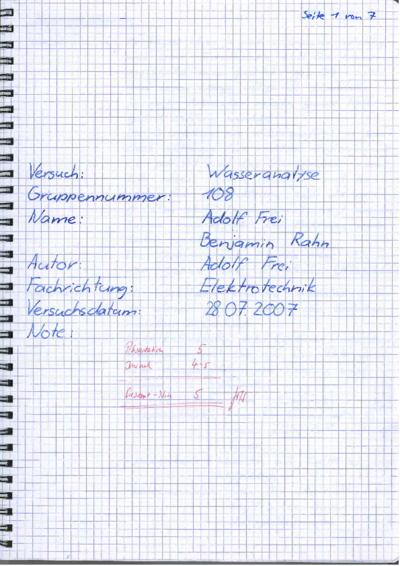 Seite 1 von 7
Versuch: Wasseranalyse
Gruppennummer: 108
Name: Adolf Frei
Benjamin Rahn
Autor: Adolf Frei
Fachrichtung: Elektrotechnik
Versuchsdatum: 28.07.2007
Note:
5
Journal 4-5
5